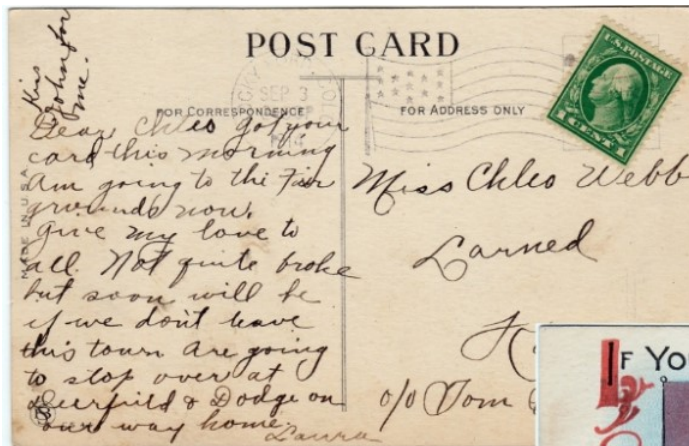 POST CARD
Kiss
John for
me.
SEP 3
FOR CORRESPONDENCE
FOR ADDRESS ONLY
U.S. POSTAGE
1 CENT 1
Dear Chleo got your
card this morning
am going to the Fair
grounds now.
Give my love to
all. Not quite broke
but soon will be
if we don't leave
this town. Are going
to stop over at
Deerfield & Dodge on
our way home.
Laura
MADE IN U.S.A.
Miss Chleo Webb
Larned
c/o Tom
IF YO